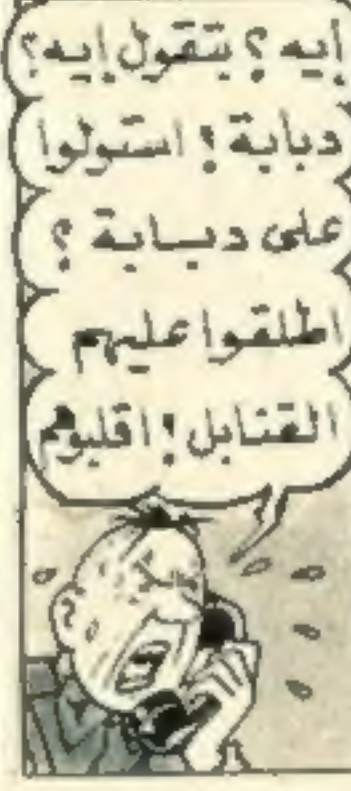 إيه؟ بتقول إيه؟
دبابة! استولوا
على دبابة؟
اطلقوا عليهم
القنابل! اقلبوهم